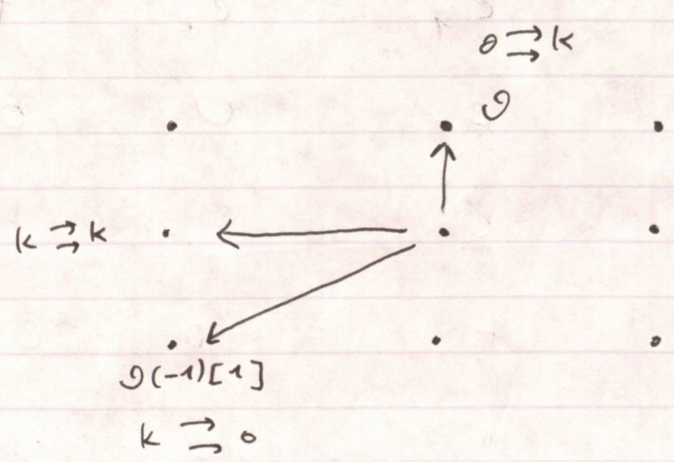 0 ⇉ k
O
k ⇉ k
O(-1)[1]
k ⇉ 0